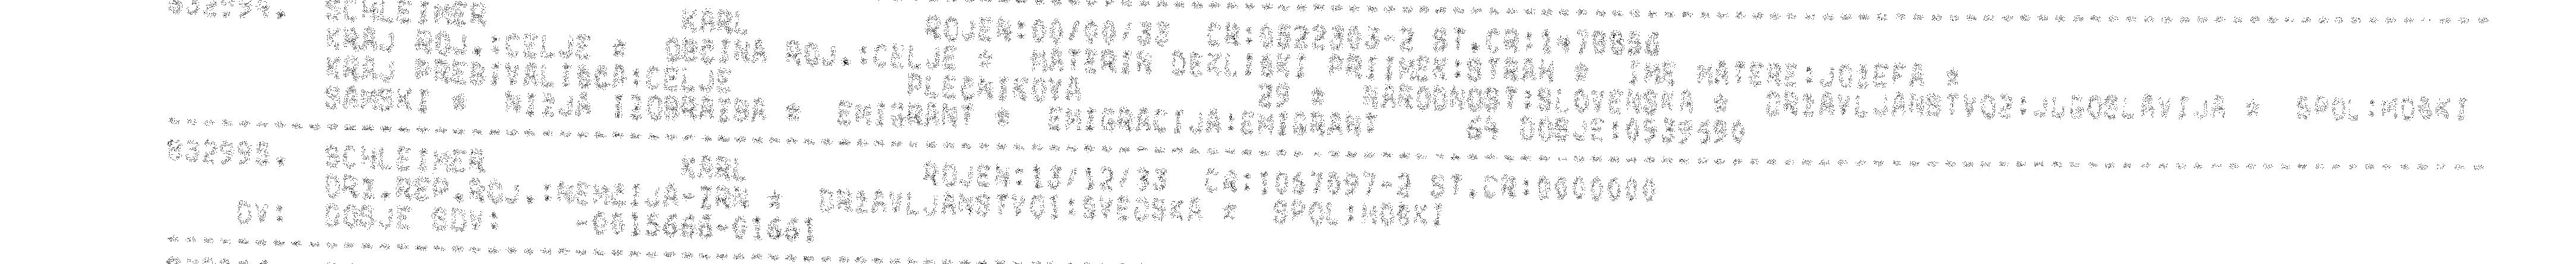 832994. SCHLEIMER KARL ROJEN:00/00/33 CR:0522303-2 ST.CR:1478856
KRAJ ROJ.:CELJE * OBCINA ROJ.:CELJE * MATERIN DEKLISKI PRIIMEK:STRAH * IME MATERE:JOZEFA *
KRAJ PREBIVALISCA:CELJE PLECNIKOVA 29 * NARODNOST:SLOVENSKA * DRZAVLJANSTVO2:JUGOSLAVIJA * SPOL:MOSKI
SAMSKI * NIZJA IZOBRAZBA * EMIGRANT * EMIGRACIJA:EMIGRANT 64 DOSJE:0539690
832995. SCHLEIMER KARL ROJEN:13/12/33 CR:1067097-2 ST.CR:0000000
DRZ.REP.ROJ.:NEMCIJA-ZRN * DRZAVLJANSTVO1:SVEDSKA * SPOL:MOSKI
OV: DOSJE SDV: -0015666-01661